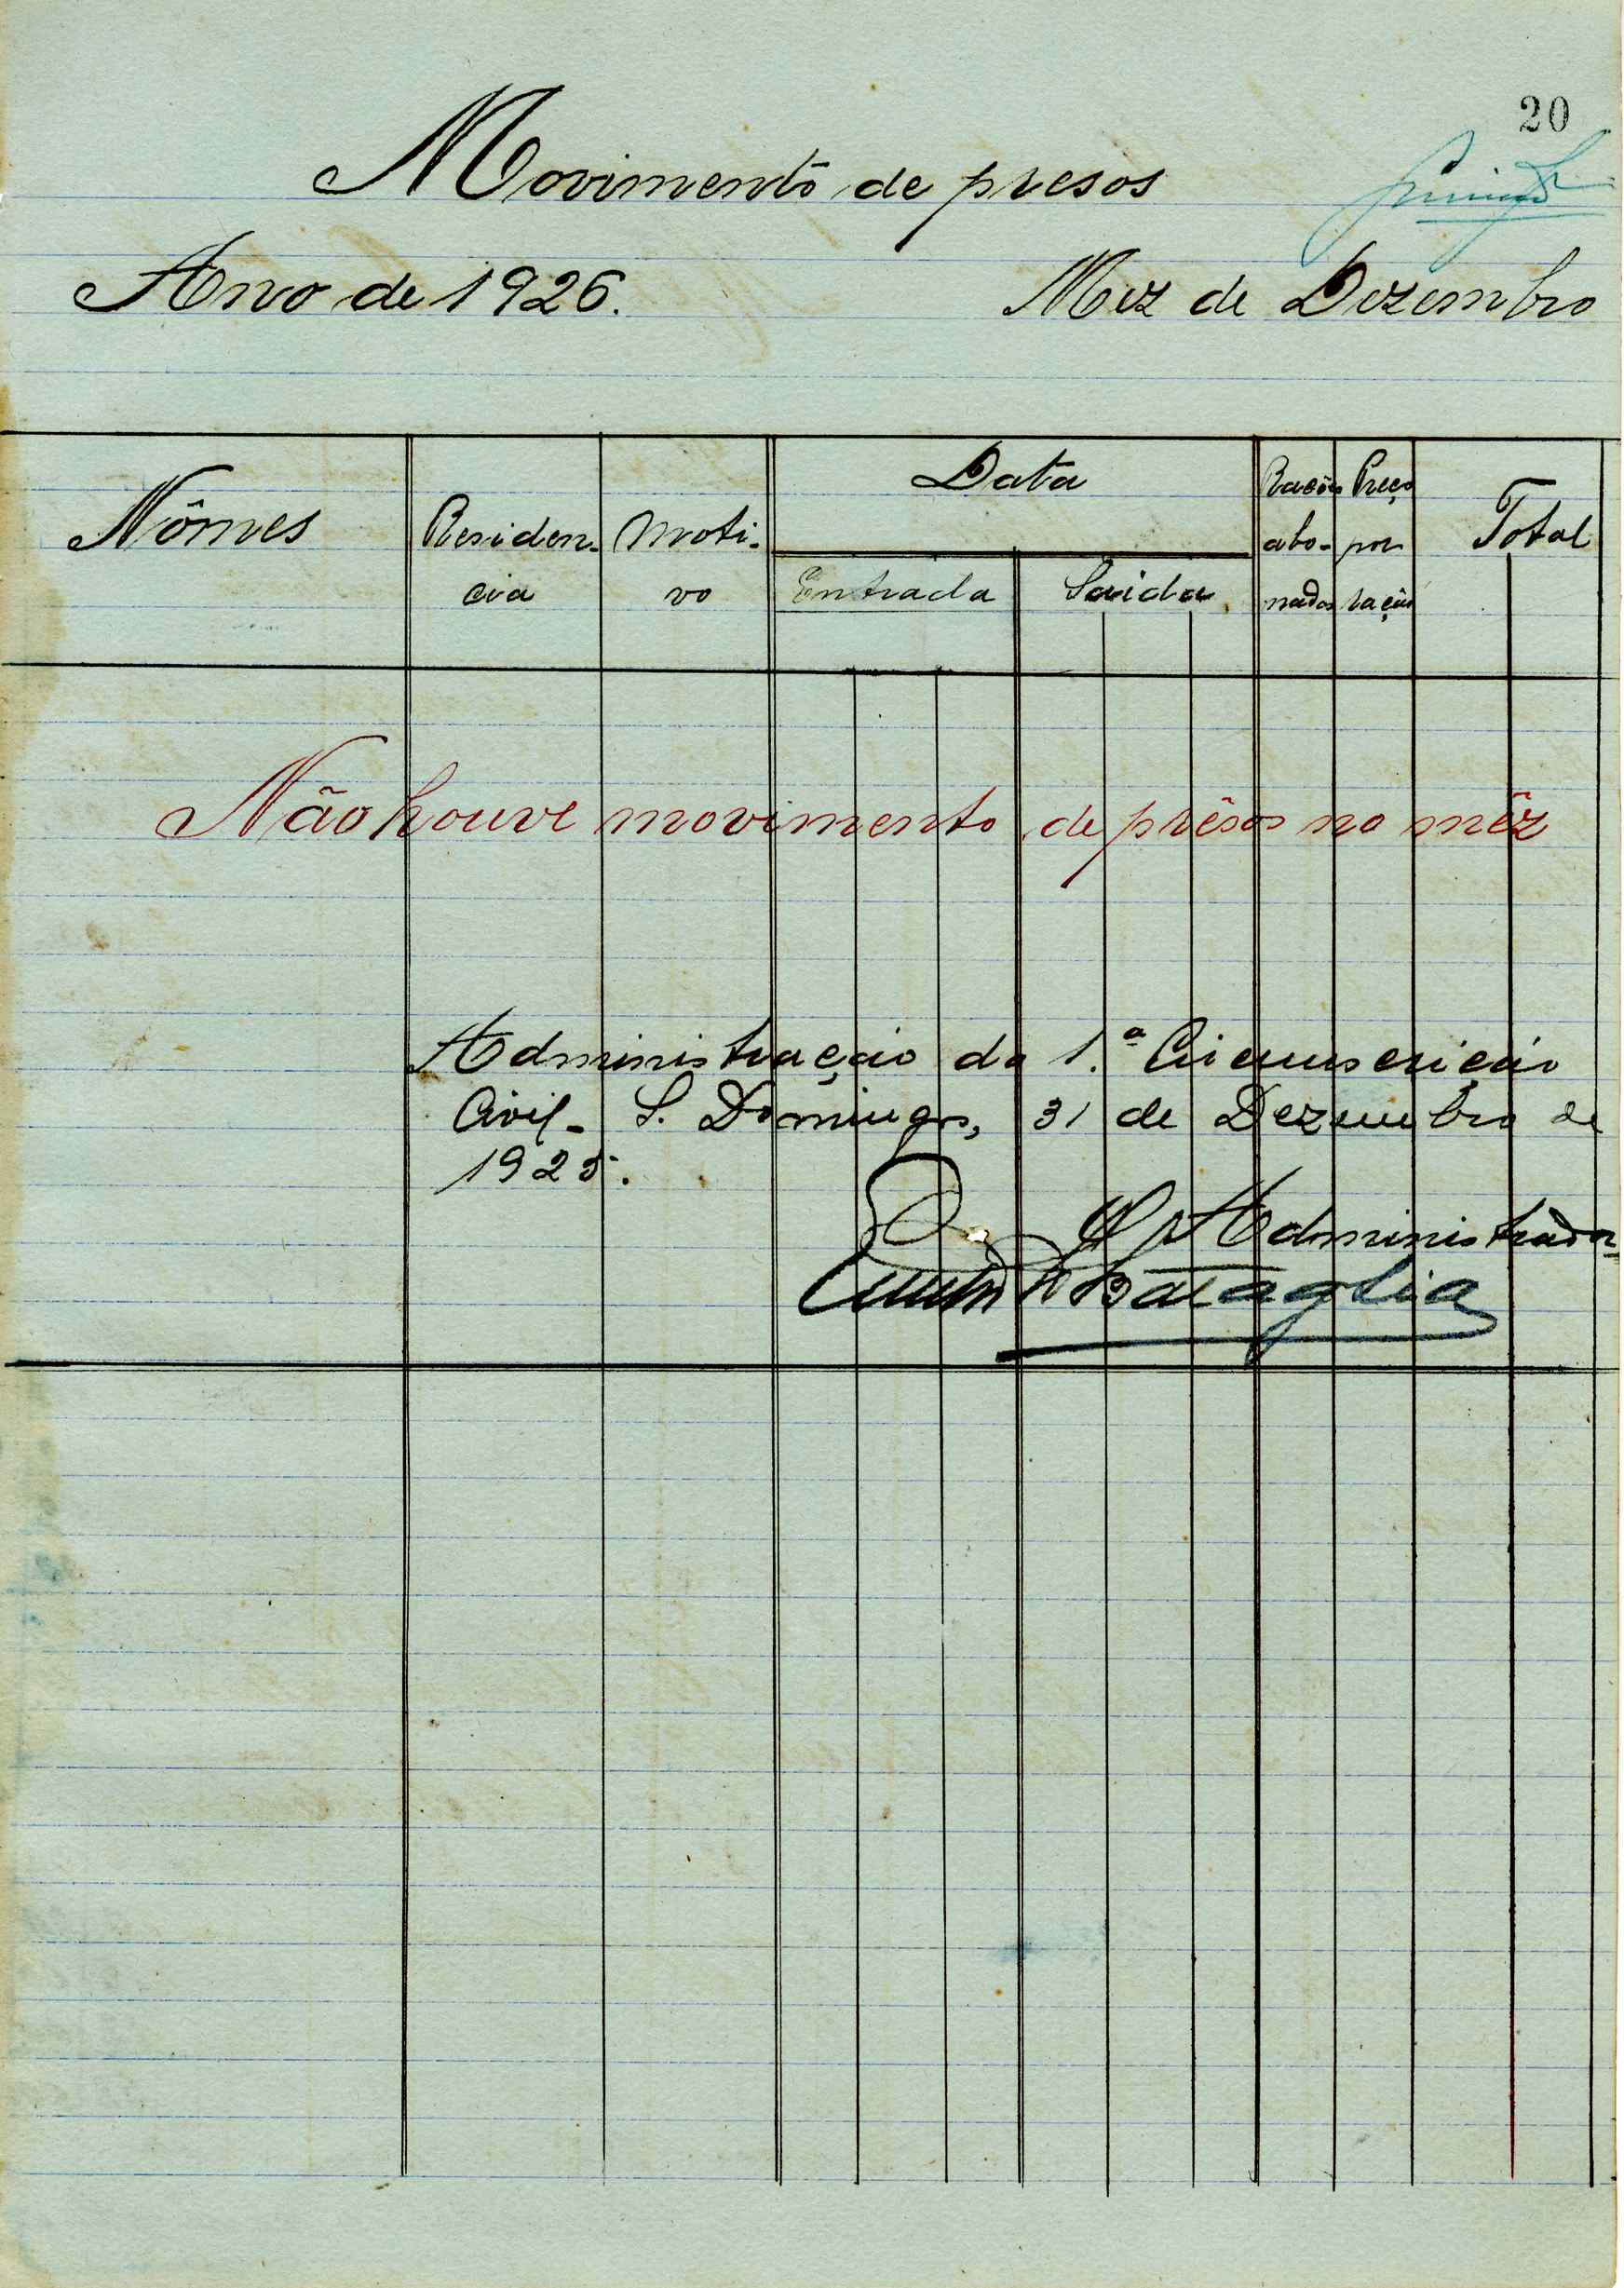 20
Movimento de presos
Ano de 1926. Mez de Dezembro
Nômes Residen- Moti- Data Rações Preço Total
cia vo abo- por
Entrada Saida nados ração
Não houve movimento de prêsos no mêz
Administração da 1.ª Circunscrição
Civil - S. Domingos, 31 de Dezembro de
1925.
O Administrador
Bataglia